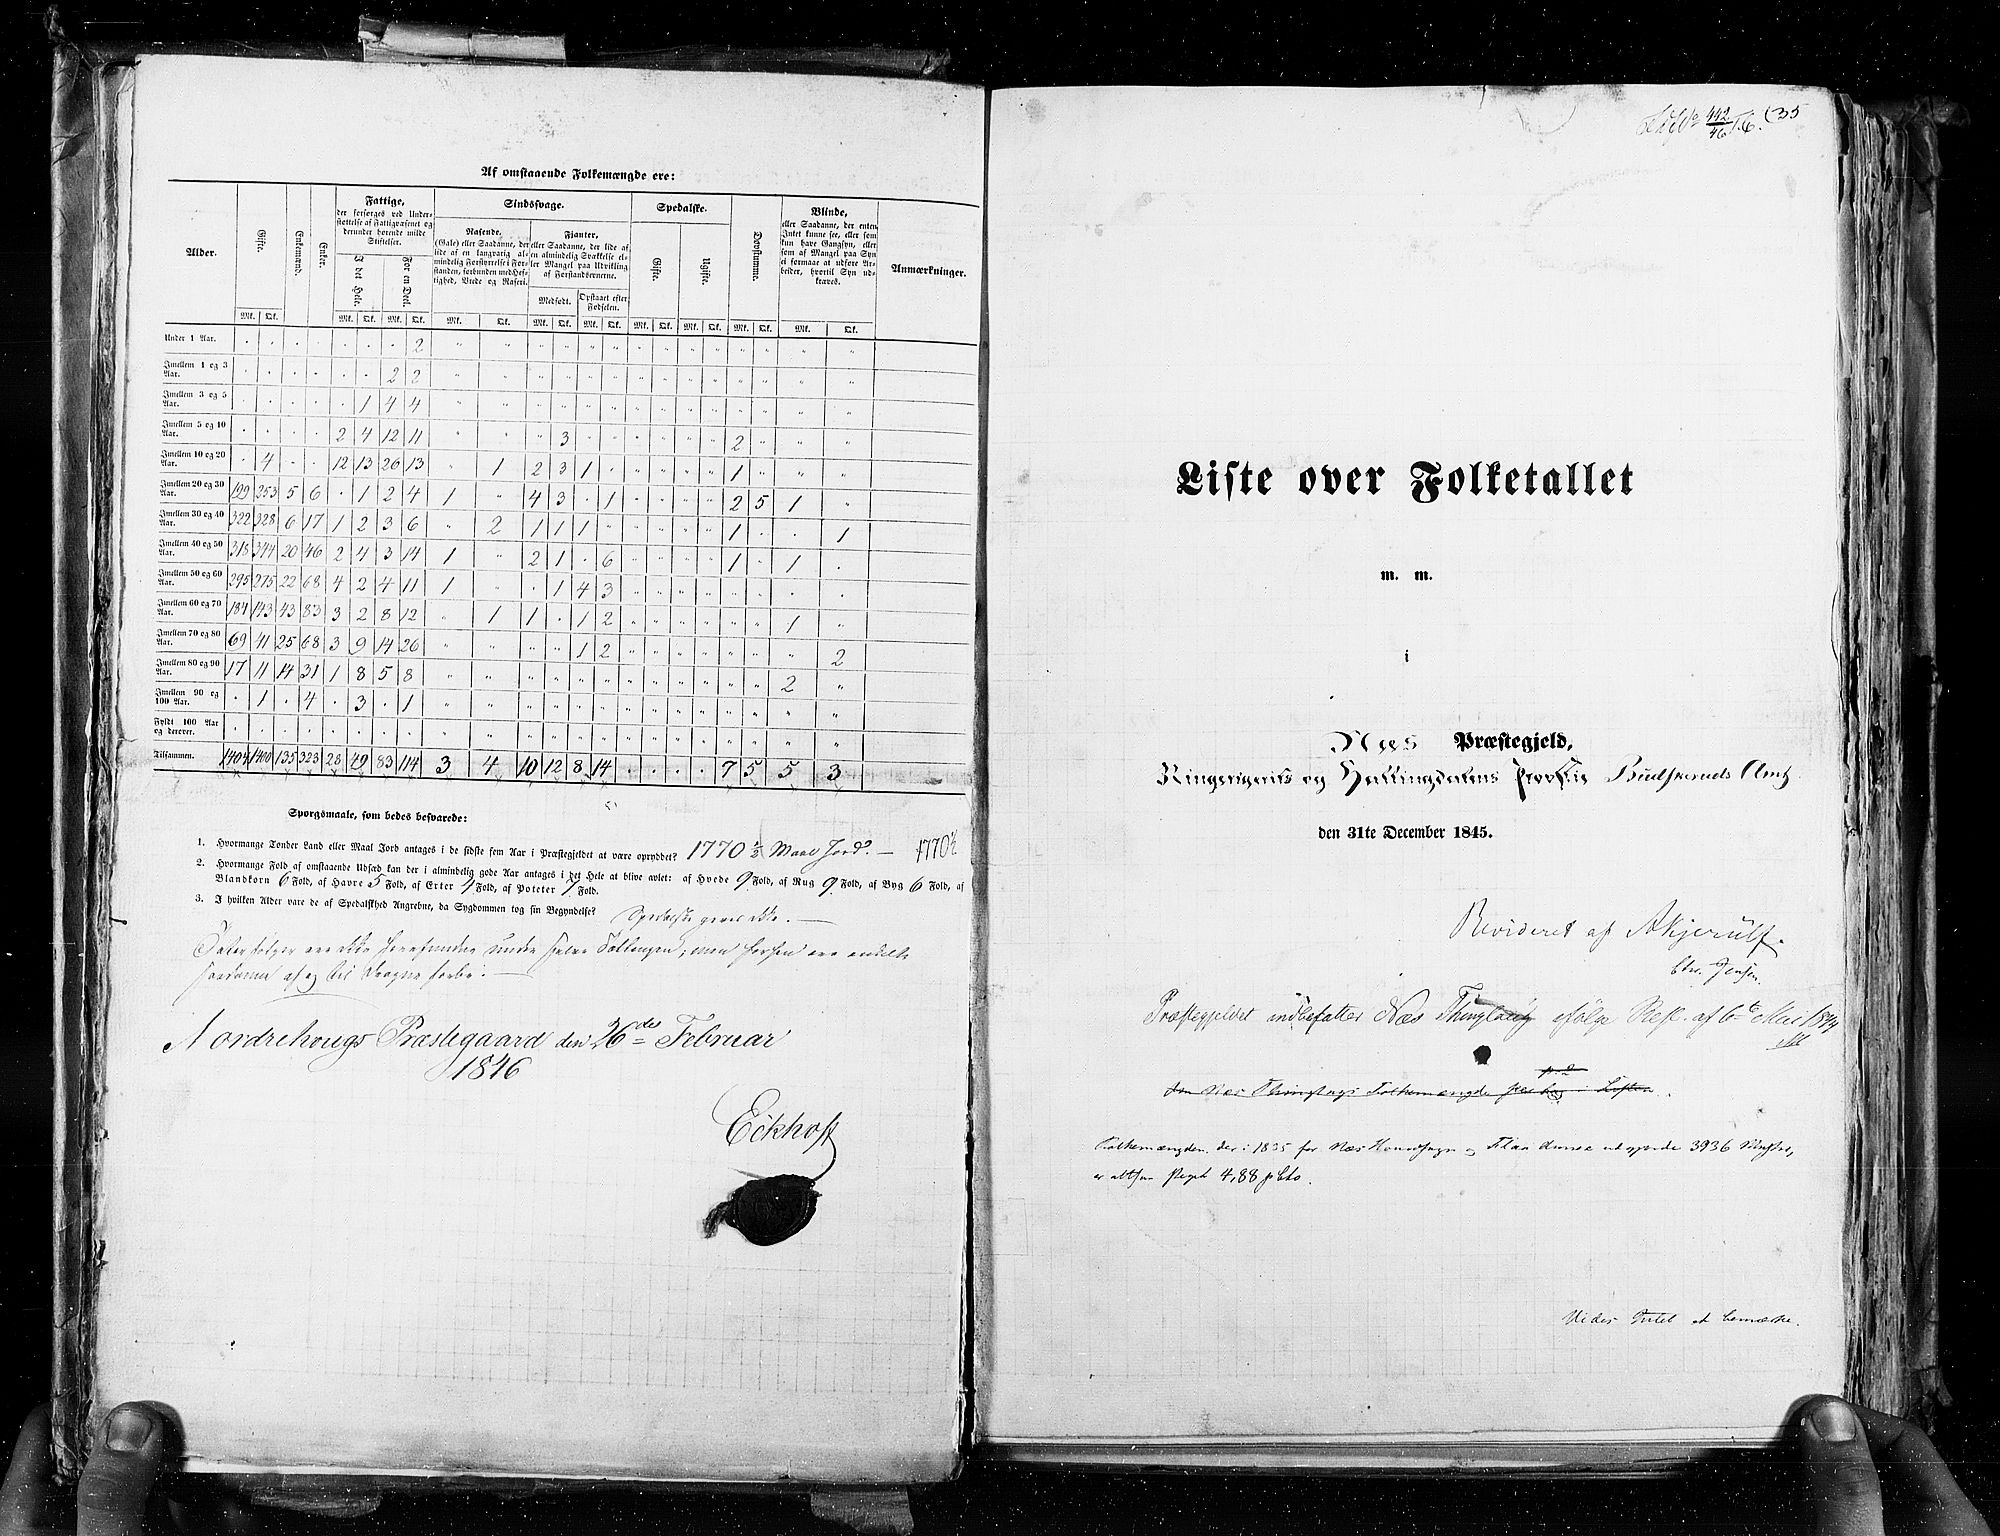 Af omstaaende Folkemængde ere:
Alder. | Gifte. | Enkemænd. | Enker. | Fattige, der forsørges ved Understøttelse af Fattigvæsenet og derunder hørende milde Stiftelser. | Sindssvage. | Spedalske. | Døvstumme. | Blinde, eller Saadanne, der enten Intet kunne see, eller som kun have Gangsyn, eller som af Mangel paa Syn ei formaae at udføre Arbeider, hvortil Syn udkræves. | Anmærkninger.
I det Hele. | For en Deel. | Rasende. (Gale) eller Saadanne, der lide af en langvarig almindelig Forstyrrelse i Forstanden, forbunden med Heftighed, Vrede og Raseri. | Fjanter, eller Saadanne, der lide af en almindelig Svækkelse eller Mangel paa Udvikling af Forstandsevnerne. | Gifte. | Ugifte.
Medfødt. | Opstaaet efter Fødselen.
Mk. Qk. Mk. Qk. Mk. Qk. Mk. Qk. Mk. Qk. Mk. Qk. Mk. Qk. Mk. Qk. Mk. Qk. Mk. Qk.
Under 1 Aar. . . . . . . . 2 " " " " " " " " " " " " " "
Imellem 1 og 3 Aar. . . . . . . 2 2 " " " " " " " " " " " " " "
Imellem 3 og 5 Aar. . . . . . 1 4 4 " " " " " " " " " " " " " "
Imellem 5 og 10 Aar. . . . . 2 4 12 11 " " " 3 " " " " " " 2 " " "
Imellem 10 og 20 Aar. . 4 . . 12 13 26 13 " 1 2 3 1 " " " " " 1 " " "
Imellem 20 og 30 Aar. 199 253 5 6 . 1 2 4 1 " 4 3 . 1 " " " " 2 5 1 "
Imellem 30 og 40 Aar. 322 328 6 17 1 2 3 6 " 2 1 1 1 " " " " " 1 . . 1
Imellem 40 og 50 Aar. 318 344 20 46 2 4 3 14 1 " 2 1 . 6 " " " " 1 . 1 .
Imellem 50 og 60 Aar. 295 275 22 68 4 2 4 11 1 " . 1 4 3 " " " " " . . .
Imellem 60 og 70 Aar. 184 143 43 83 3 2 8 12 " 1 1 . 1 2 " " " " " " 1 "
Imellem 70 og 80 Aar. 69 41 25 68 3 9 14 26 " " " " 1 2 " " " " " " " 2
Imellem 80 og 90 Aar. 17 11 14 31 1 8 5 8 " " " " " " " " " " " " 2 "
Imellem 90 og 100 Aar. . 1 . 4 . 3 . 1 " " " " " " " " " " " " " "
Fyldt 100 Aar og derover. . . . . . . . . " " " " " " " " " " " " " "
Tilsammen. 1404 1400 135 323 28 49 83 114 3 4 10 12 8 14 . . . . 7 5 5 3
Spørgsmaale, som bedes besvarede:
1. Hvormange Tønder Land eller Maal Jord antages i de sidste fem Aar i Præstegjeldet at være opryddet? 1770 ½ Maal Jord. — 1770½
2. Hvormange Fold af omstaaende Udsæd kan der i almindelig gode Aar antages i det Hele at blive avlet: af Hvede 9 Fold, af Rug 9 Fold, af Byg 6 Fold, af
Blandkorn 6 Fold, af Havre 5 Fold, af Erter 4 Fold, af Poteter 7 Fold.
3. I hvilken Alder vare de af Spedalskhed Angrebne, da Sygdommen tog sin Begyndelse? Spedalske gives ikke. —
ere ikke under selve Tællingen, men ere
af og til
Nordrehougs Præstegaard den 26de Februar
1846
Eckhoff
442/46 T.6. 35
Liste over Folketallet
m. m.
i
Næs Præstegjeld,
Ringerigerits og Hallingdalens Provstie Budskeruds Amt
den 31te December 1845.
Revideret af AKjerulf.
Chr. Jensen.
Præstegjeldet indbefatter Næs Thinglaug ifølge Resl. af 6te Mai 1844
Næs Thinglaugs Folkemængde i Listen.
Folkemængden, der i 1835 for Næs Hovedsogn og Flaa Annex udgjorde 3936 Msker,
er altsaa steget 4,88 pCto.
Videre Intet at bemærke.